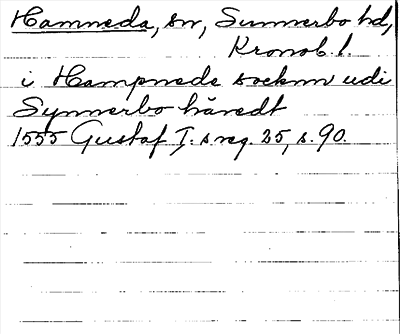 Hamneda, sn, Sunnerbo hd,
Kronob. l.
i Hampneda socknn udi
Synnerbo häredt
1555 Gustaf I:s reg. 25, s. 90.